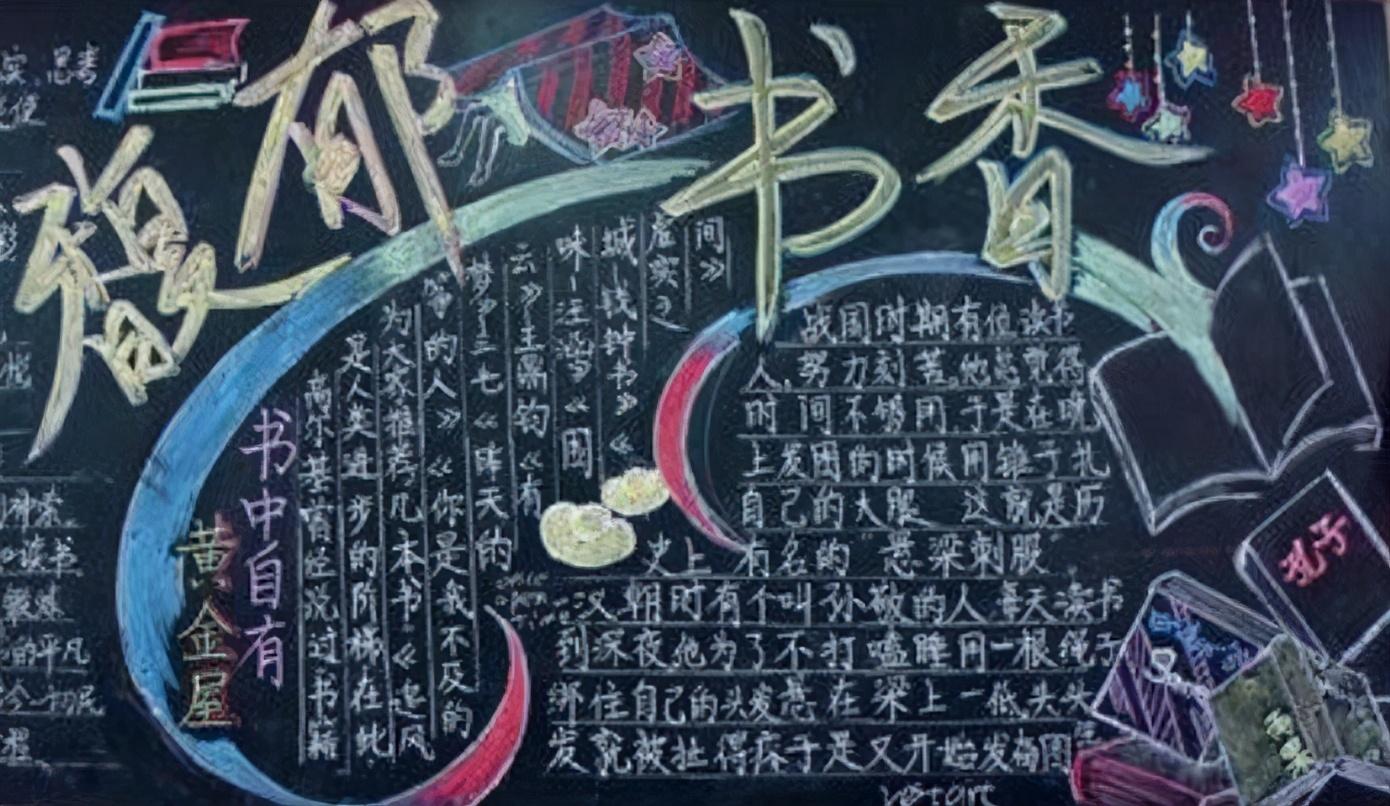 馥郁书香
思考
读书
的平凡
书中自有
黄金屋
高尔基曾经说过书籍
是人类进步的阶梯在此
为大家推荐几本书《追风
筝的人》《你是我不及的
梦》-三七《昨天的
云》-王鼎钧《有
味-汪曾《围
城-钱钟书》《
虚实之
间》
战国时期有位读书
人,努力刻苦,他总觉得
时间不够用于是在晚
上发困的时候用锥子扎
自己的大腿 这就是历
史上有名的“悬梁刺股
汉朝时有个叫孙敬的人每天读书
到深夜他为了不打嗑睡用一根绳子
绑住自己的头发悬在梁上一低头头
发就被扯得疼于是又开始发奋图
孔子